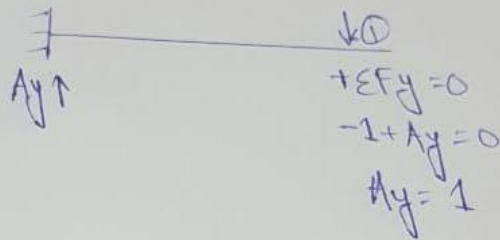 ↓①
Ay↑
+ΣFy=0
-1+Ay=0
Ay=1